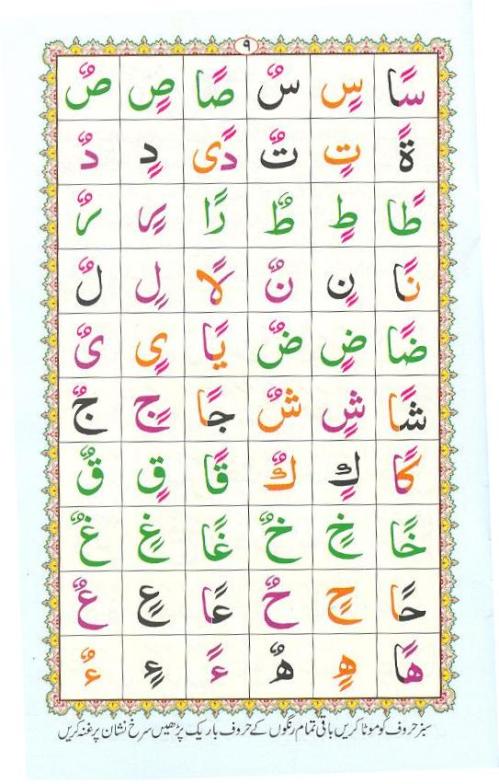 ٩
سًا سٍ سٌ صًا صٍ صٌ
ةً تٍ تٌ دًى دٍ دٌ
طًا طٍ طٌ رًا رٍ رٌ
نًا نٍ نٌ لًا لٍ لٌ
ضًا ضٍ ضٌ یًا یٍ یٌ
شًا شٍ شٌ جًا جٍ جٌ
كًا كٍ كٌ قًا قٍ قٌ
خًا خٍ خٌ غًا غٍ غٌ
حًا حٍ حٌ عًا عٍ عٌ
هًا هٍ هٌ ءً ءٍ ءٌ
سبز حروف کو موٹا کریں باقی تمام رنگوں کے حروف باریک پڑھیں سرخ نشان پر غنہ کریں